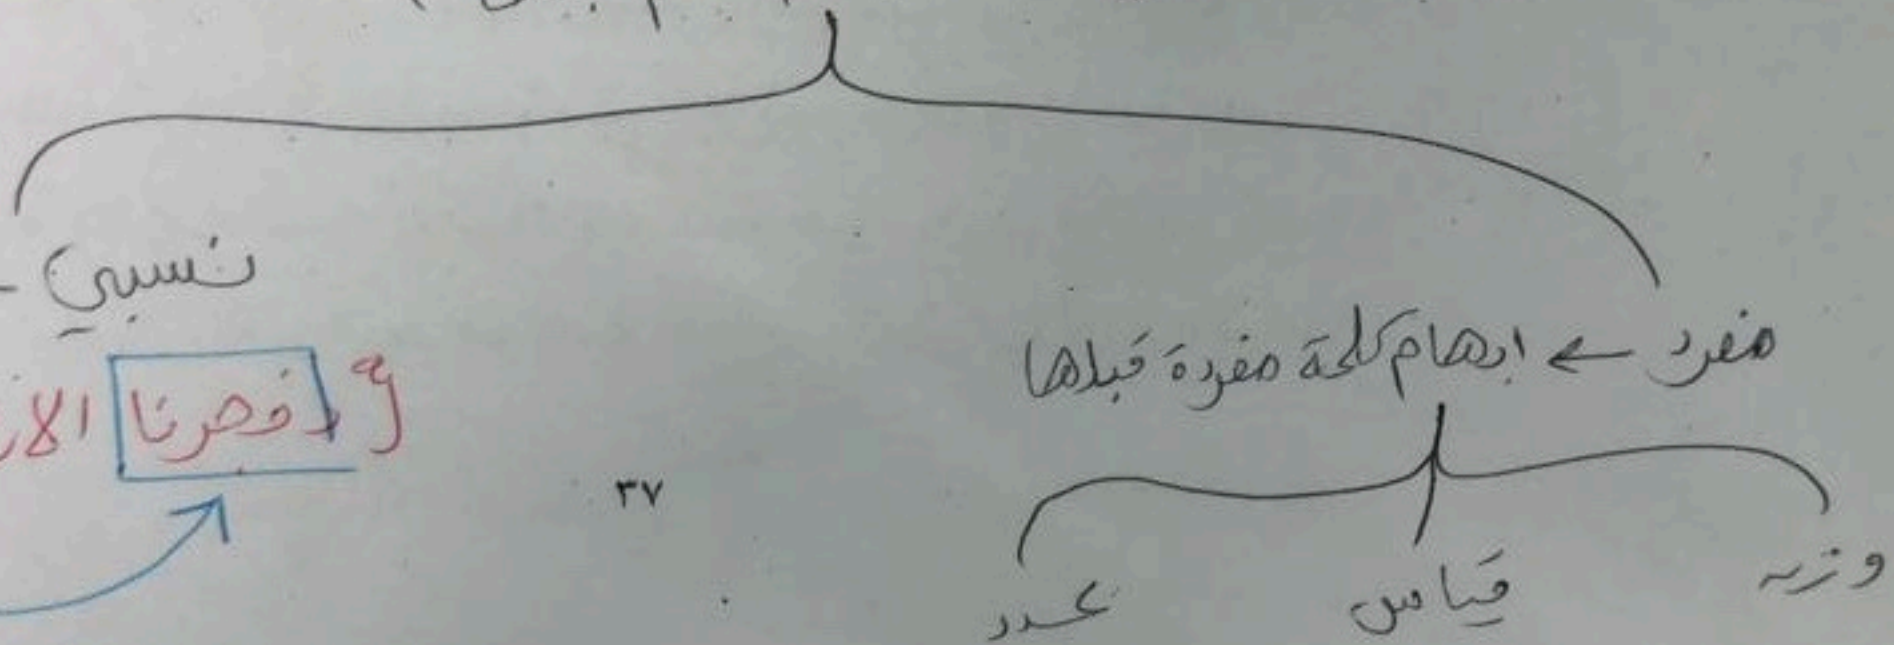 نسبي -
مفرد ← ابهام كلمة مفردة قبلها
و فجرنا
٣٧
وزن
قياس
عدد